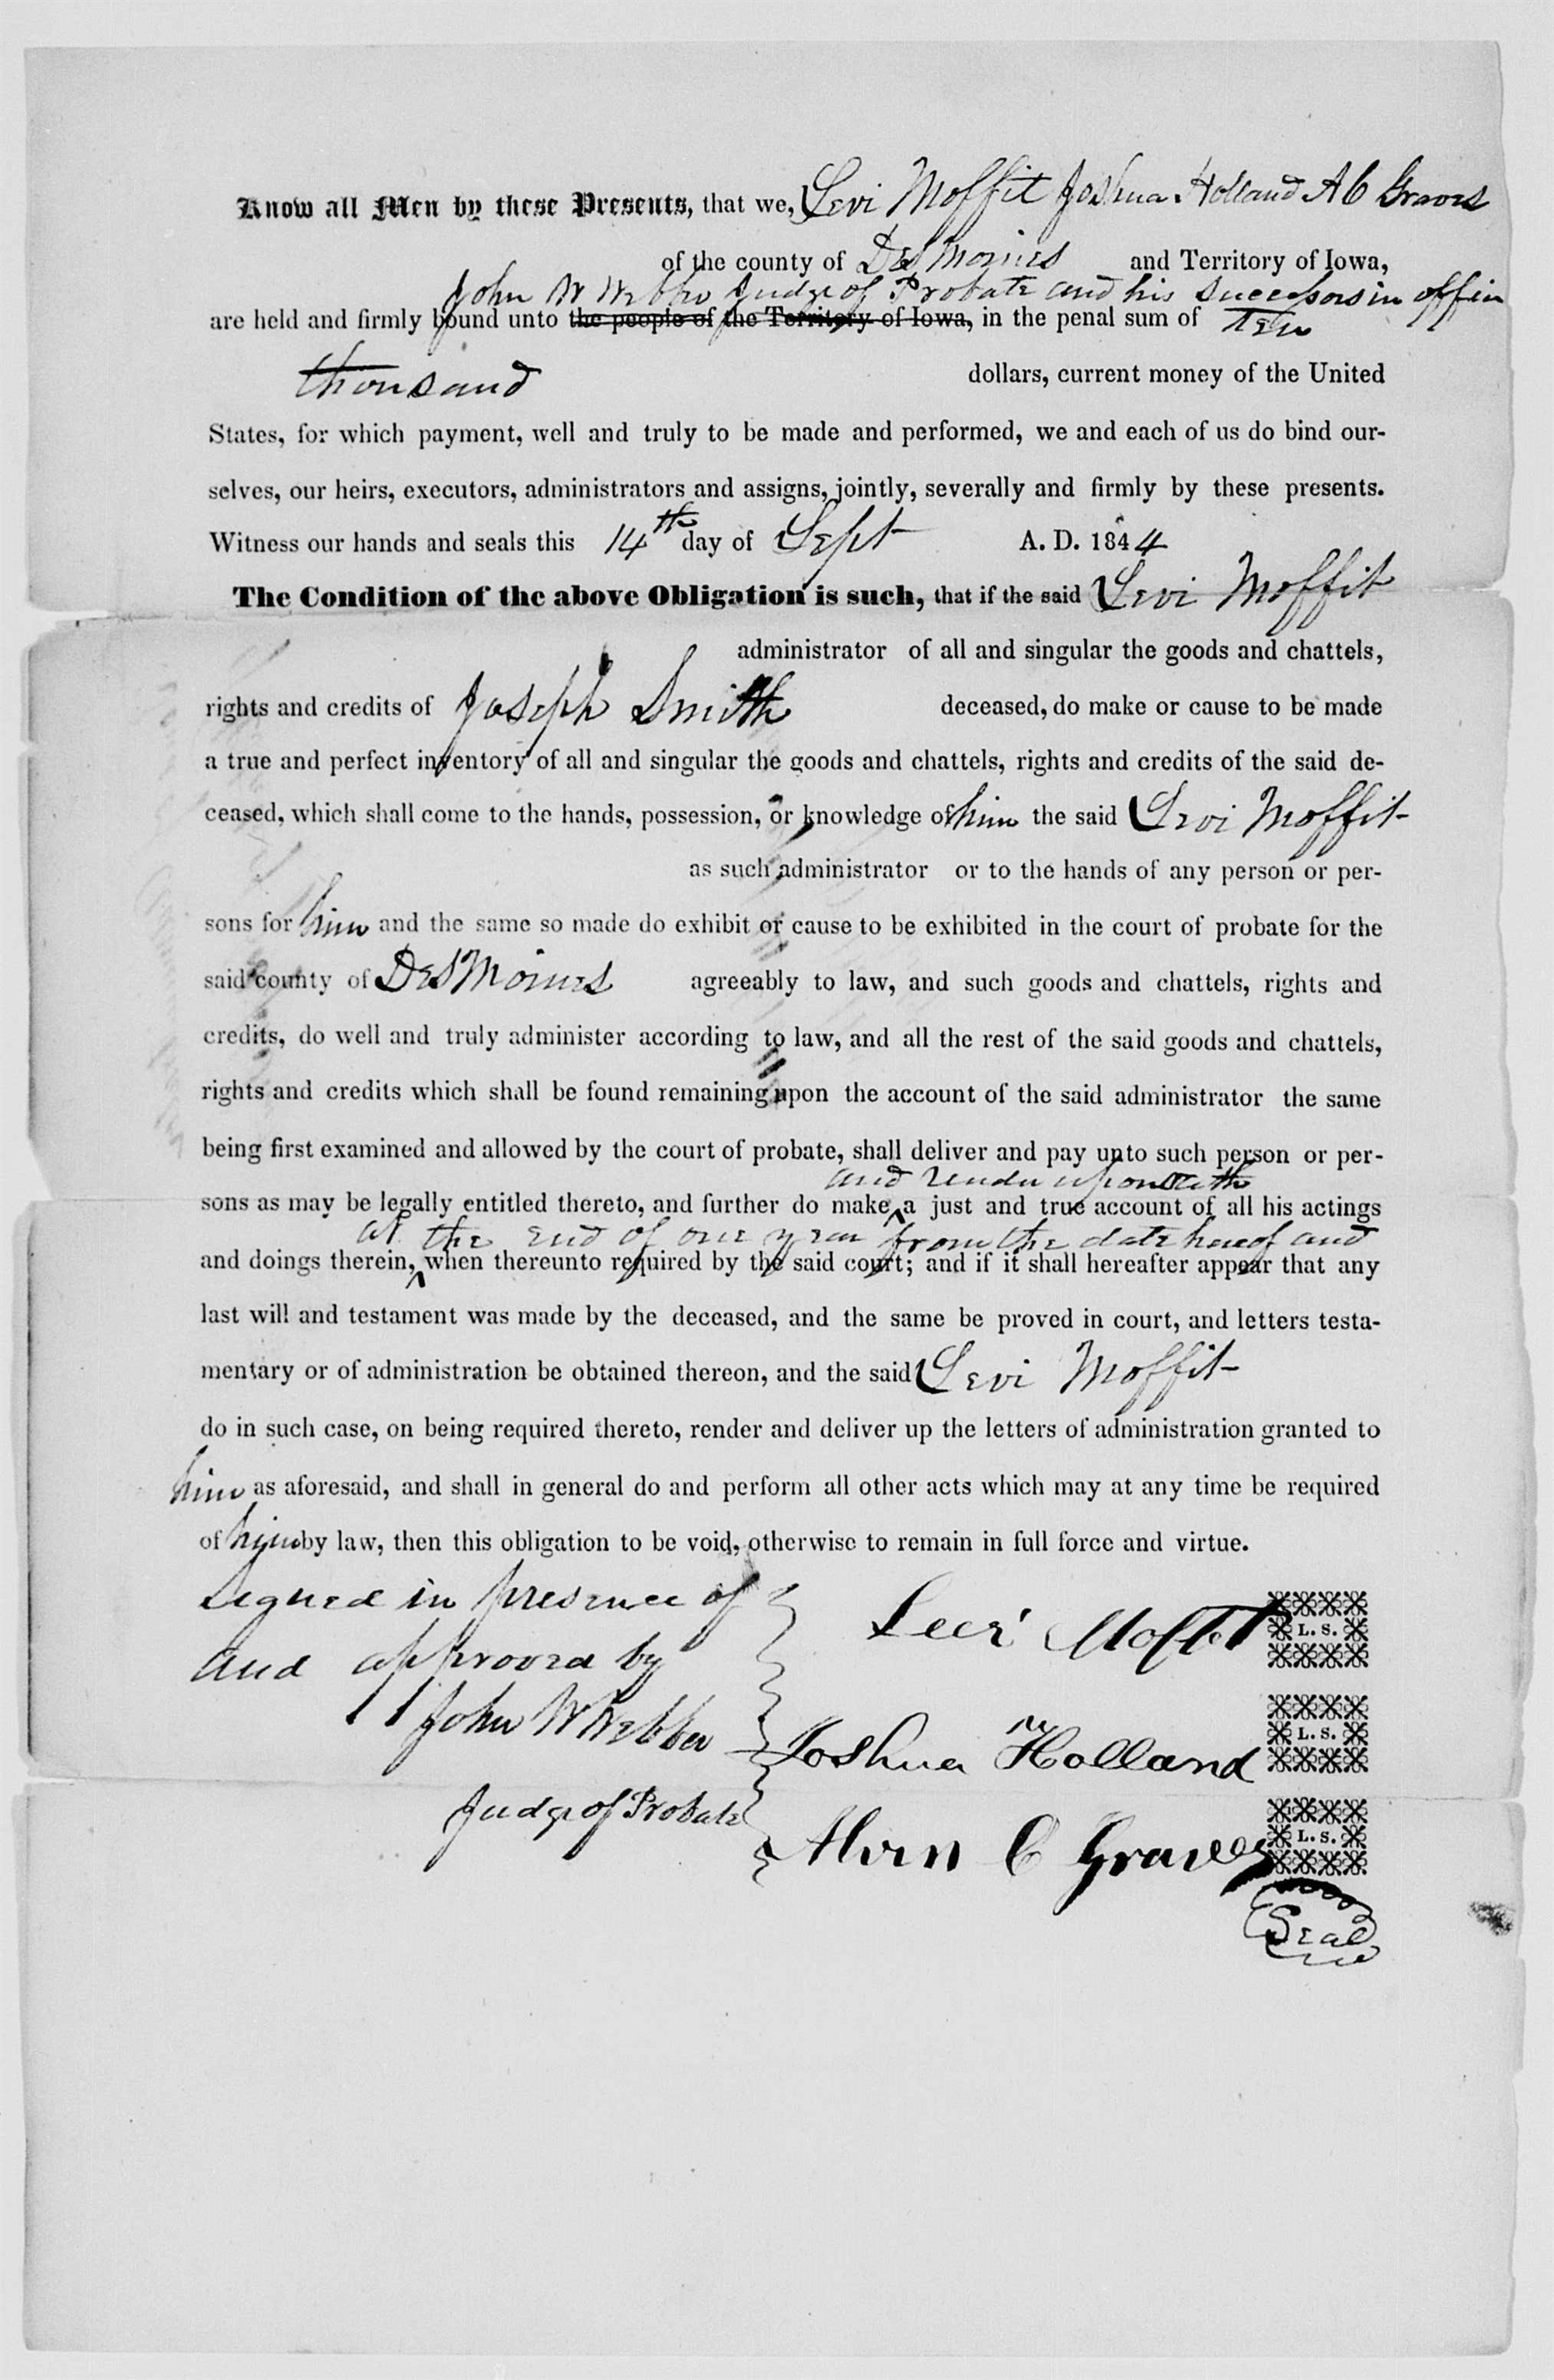 Know all Men by these Presents, that we, Levi Moffit Joshua Holland A C Graves
of the county of Des Moines and Territory of Iowa,
John W Webber Judge of Probate and his Successors in office
are held and firmly bound unto the people of the Territory of Iowa, in the penal sum of Ten
thousand dollars, current money of the United
States, for which payment, well and truly to be made and performed, we and each of us do bind our-
selves, our heirs, executors, administrators and assigns, jointly, severally and firmly by these presents.
Witness our hands and seals this 14th day of Sept A. D. 1844
The Condition of the above Obligation is such, that if the said Levi Moffit
administrator of all and singular the goods and chattels,
rights and credits of Joseph Smith deceased, do make or cause to be made
a true and perfect inventory of all and singular the goods and chattels, rights and credits of the said de-
ceased, which shall come to the hands, possession, or knowledge of him the said Levi Moffit
as such administrator or to the hands of any person or per-
sons for him and the same so made do exhibit or cause to be exhibited in the court of probate for the
said county of Des Moines agreeably to law, and such goods and chattels, rights and
credits, do well and truly administer according to law, and all the rest of the said goods and chattels,
rights and credits which shall be found remaining upon the account of the said administrator the same
being first examined and allowed by the court of probate, shall deliver and pay unto such person or per-
and render upon oath
sons as may be legally entitled thereto, and further do make a just and true account of all his actings
at the end of one year from the date hereof and
and doings therein, when thereunto required by the said court; and if it shall hereafter appear that any
last will and testament was made by the deceased, and the same be proved in court, and letters testa-
mentary or of administration be obtained thereon, and the said Levi Moffit
do in such case, on being required thereto, render and deliver up the letters of administration granted to
him as aforesaid, and shall in general do and perform all other acts which may at any time be required
of him by law, then this obligation to be void, otherwise to remain in full force and virtue.
Signed in presence of
and approved by
John W Webber
Judge of Probate
Levi Moffet L. S.
Joshua Holland L. S.
Alvin C Graves L. S.
Seal